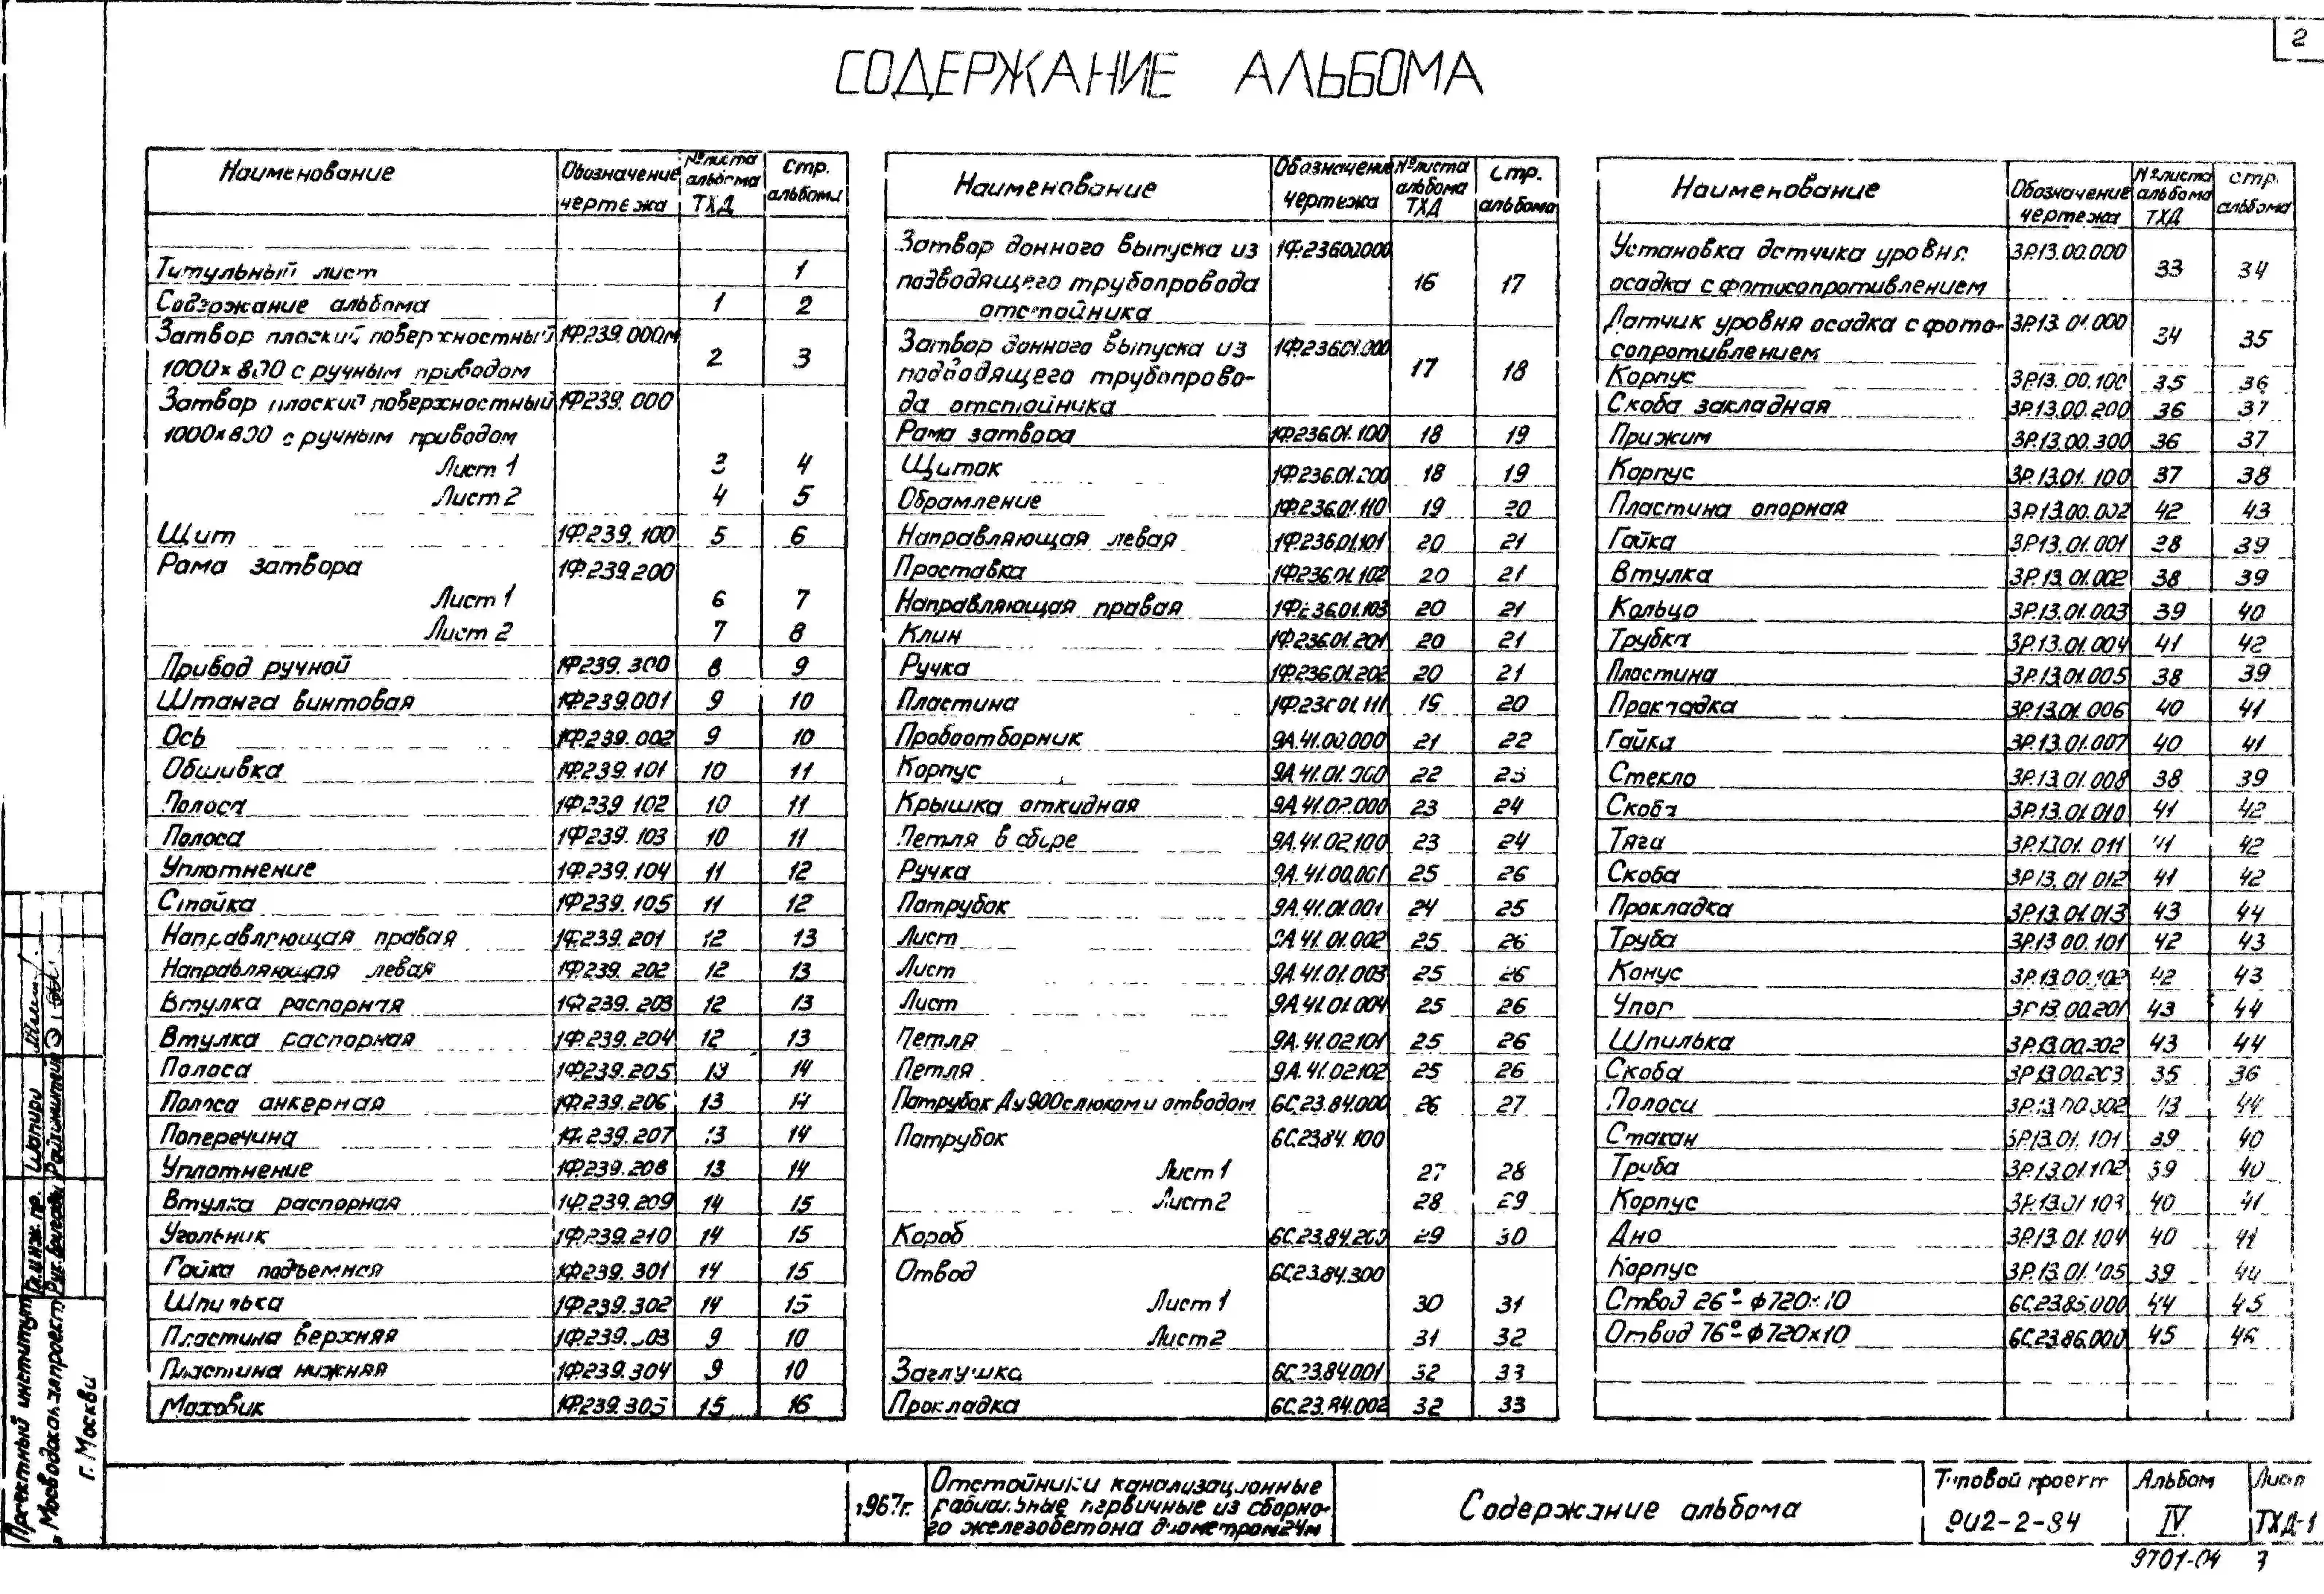 2
СОДЕРЖАНИЕ АЛЬБОМА
Наименование Обозначение чертежа №листа альбома ТХД Стр. альбома
Титульный лист 1
Содержание альбома 1 2
Затвор плоский поверхностный 1Ф239.000м
1000×800 с ручным приводом 2 3
Затвор плоский поверхностный 1Ф239.000
1000×800 с ручным приводом
Лист 1 3 4
Лист 2 4 5
Щит 1Ф.239.100 5 6
Рама затвора 1Ф.239.200
Лист 1 6 7
Лист 2 7 8
Привод ручной 1Ф239.300 8 9
Штанга винтовая 1Ф.239.001 9 10
Ось 1Ф.239.002 9 10
Обшивка 1Ф.239.101 10 11
Полоса 1Ф239.102 10 11
Полоса 1Ф239.103 10 11
Уплотнение 1Ф.239.104 11 12
Стойка 1Ф239.105 11 12
Направляющая правая 1Ф.239.201 12 13
Направляющая левая 1Ф.239.202 12 13
Втулка распорная 1Ф239.203 12 13
Втулка распорная 1Ф.239.204 12 13
Полоса 1Ф239.205 13 14
Полоса анкерная 1Ф.239.206 13 14
Поперечина 1Ф.239.207 13 14
Уплотнение 1Ф.239.208 13 14
Втулка распорная 1Ф.239.209 14 15
Угольник 1Ф.239.210 14 15
Гайка подъемная 1Ф239.301 14 15
Шпилька 1Ф.239.302 14 15
Пластина верхняя 1Ф239.303 9 10
Пластина нижняя 1Ф239.304 9 10
Маховик 1Ф.239.305 15 16
Наименование Обозначение чертежа №листа альбома ТХД Стр. альбома
Затвор донного выпуска из 1Ф.236.00.000
подводящего трубопровода 16 17
отстойника
Затвор донного выпуска из 1Ф.236.01.000
подводящего трубопрово- 17 18
да отстойника
Рама затвора 1Ф.236.01.100 18 19
Щиток 1Ф.236.01.200 18 19
Обрамление 1Ф.236.01.110 19 20
Направляющая левая 1Ф.236.01.101 20 21
Проставка 1Ф.236.01.102 20 21
Направляющая правая 1Ф.236.01.103 20 21
Клин 1Ф.236.01.201 20 21
Ручка 1Ф.236.01.202 20 21
Пластина 1Ф.236.01.111 19 20
Пробоотборник 9А.41.00.000 21 22
Корпус 9А.41.01.000 22 23
Крышка откидная 9А.41.02.000 23 24
Петля в сборе 9А.41.02.100 23 24
Ручка 9А.41.00.001 25 26
Патрубок 9А.41.01.001 24 25
Лист 9А.41.01.002 25 26
Лист 9А.41.01.003 25 26
Лист 9А.41.01.004 25 26
Петля 9А.41.02101 25 26
Петля 9А.41.02102 25 26
Патрубок Ду900 с люком и отводом 6С.23.84.000 26 27
Патрубок 6С.23.84.100
Лист 1 27 28
Лист 2 28 29
Короб 6С.23.84.200 29 30
Отвод 6С.23.84.300
Лист 1 30 31
Лист 2 31 32
Заглушка 6С.23.84.001 32 33
Прокладка 6С.23.84.002 32 33
Наименование Обозначение чертежа №листа альбома ТХД стр. альбома
Установка датчика уровня 3Р.13.00.000
осадка с фотосопротивлением 33 34
Датчик уровня осадка с фото- 3Р.13.01.000
сопротивлением 34 35
Корпус 3Р.13.00.100 35 36
Скоба закладная 3Р.13.00.200 36 37
Прижим 3Р.13.00.300 36 37
Корпус 3Р.13.01.100 37 38
Пластина опорная 3Р.13.00.002 42 43
Гайка 3Р.13.01.001 38 39
Втулка 3Р.13.01.002 38 39
Кольцо 3Р.13.01.003 39 40
Трубка 3Р.13.01.004 41 42
Пластина 3Р.13.01.005 38 39
Прокладка 3Р.13.01.006 40 41
Гайка 3Р.13.01.007 40 41
Стекло 3Р.13.01.008 38 39
Скоба 3Р.13.01.010 41 42
Тяга 3Р.13.01.011 41 42
Скоба 3Р.13.01.012 41 42
Прокладка 3Р.13.01.013 43 44
Труба 3Р.13.00.101 42 43
Конус 3Р.13.00.102 42 43
Упор 3Р.13.00.201 43 44
Шпилька 3Р.13.00.202 43 44
Скоба 3Р.13.00.203 35 36
Полоса 3Р.13.00.302 43 44
Стакан 3Р.13.01.101 39 40
Труба 3Р.13.01.102 39 40
Корпус 3Р.13.01.103 40 41
Дно 3Р.13.01.104 40 41
Корпус 3Р.13.01.105 39 40
Отвод 26°- ф720×10 6С.23.85.000 44 45
Отвод 76°- ф720×10 6С.23.86.000 45 46
Проектный институт
Мосводоканалпроект
г. Москва
Гл. инж. пр. Шапиро
Рук. бригады
1967г.
Отстойники канализационные
радиальные первичные из сборно-
го железобетона диаметром 24м
Содержание альбома
Типовой проект
902-2-84
Альбом
IV
Лист
ТХД-1
9701-04 3